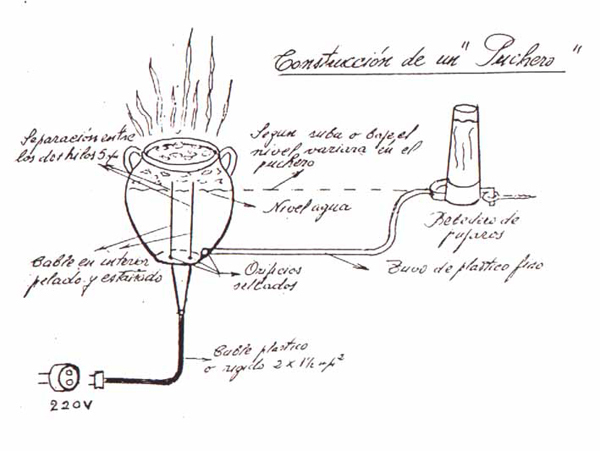 Construcción de un "Puchero"
Separación entre
los dos hilos 5
Segun suba o baje el
nivel variara en el
puchero
Nivel agua
Bebedero de
pajaros
Cable en interior
pelado y estañado
Orificios
sellados
Tuvo de plastico fino
Cable plastico
o rigido 2 x 1½ m/m²
220V